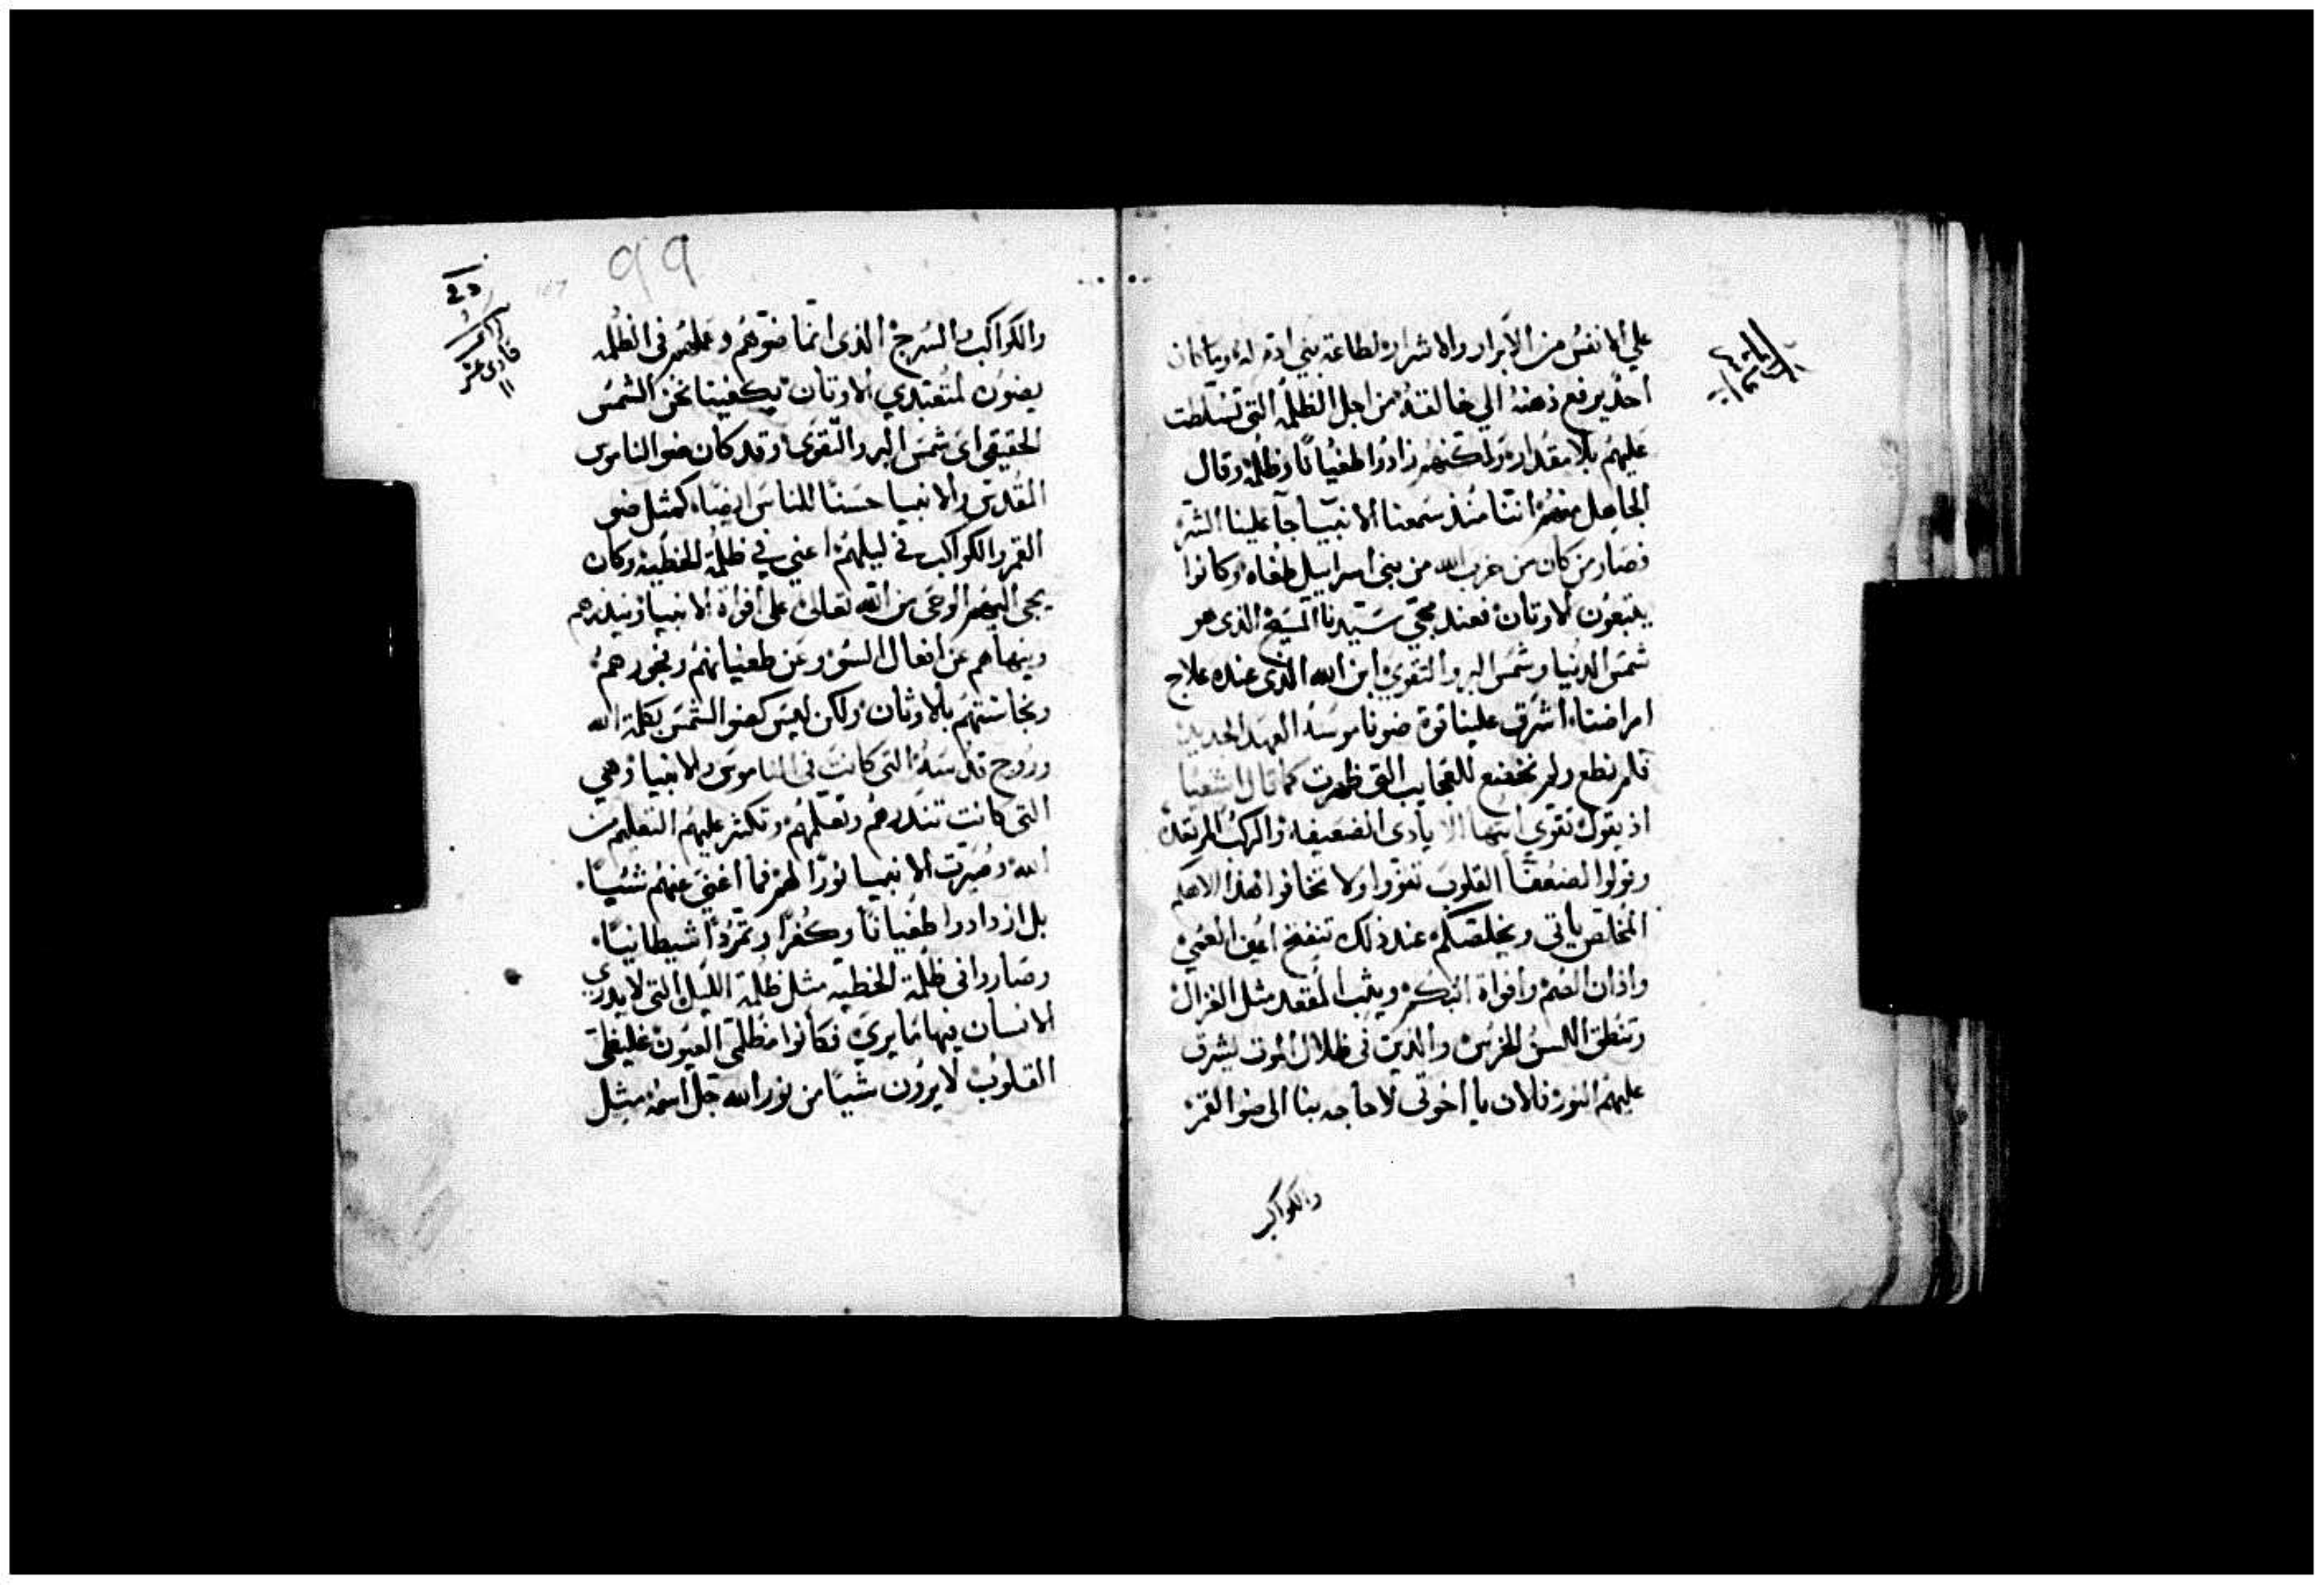 علي الانفس من الابرار والاشرار لطاعة بني ادم له وما كان
احد يرفع ذهنه الي خالقه من اجل الظلمه التي تسلطت
عليهم بلا مقدار ولكنهم زادوا طغيانًا وظلمه وقال
الجاهل منهم اننا منذ سمعنا الانبيا جآ علينا الشر
فصار من كان من حزب الله من بني اسراييل طغاه وكانوا
يتبعون الاوثان فعند مجي سيدنا المسيح الذى هو
شمس الدنيا وشمس البر والتقوي ابن الله الذى عنده علاج
امراضنا اشرق علينا قوة ضو ناموسه العهد الجديد
فلم نطع ولم نخضع للعجايب التي ظهرت كما قال اشعيا
اذ يقول تقوي ايتها الايادى الضعيفه والركب المرتعده
وقولوا لضعفا القلوب تعزوا ولا تخافوا هذا الاهكم
المخلص ياتى ويخلصكم عند ذلك تنفتح اعين العمي
واذان الصم وافواة البكم ويثب المقعد مثل الغزال
وتنطق اللسن الخرس والذين فى ظلال الموت يشرق
عليهم النور فالان يا اخوتى لا حاجه بنا الى ضو القمر
والكواكب
99
والكواكب والسرج الذى انما ضوهم وعملهم فى الظلمه
يضون لمتعبدي الاوثان يكفينا نحن الشمس
الحقيقى اى شمس البر والتقوى وقد كان ضو الناموس
المقدس والانبيا حسنًا للناس ايضاً كمثل ضو
القمر والكواكب في ليلهم اعني في ظلمة الخطيه وكان
يجى اليهم الوحى من الله تعالى على افواة الانبيا وينذرهم
وينهاهم عن افعال السو وعن طغيانهم وفجورهم
ونجاستهم بالاوثان ولكن ليس كضو الشمس بكلمة الله
وروح قدسه التى كانت فى الناموس والانبيا وهي
التى كانت تنذرهم وتعلمهم وتكثر عليهم التعليم من
الله وصيرت الانبيا نورًا لهم فما اغني عنهم شيًا
بل ازدادوا طغيانًا وكفرًا وتمردًا شيطانيًا
وصاروا فى ظلمة الخطيه مثل ظلمة الليل التى لا يدري
الانسان فيها ما يري فكانوا مظلمى العيون غليظى
القلوب لا يرون شيًا من نور الله جل اسمه مثل